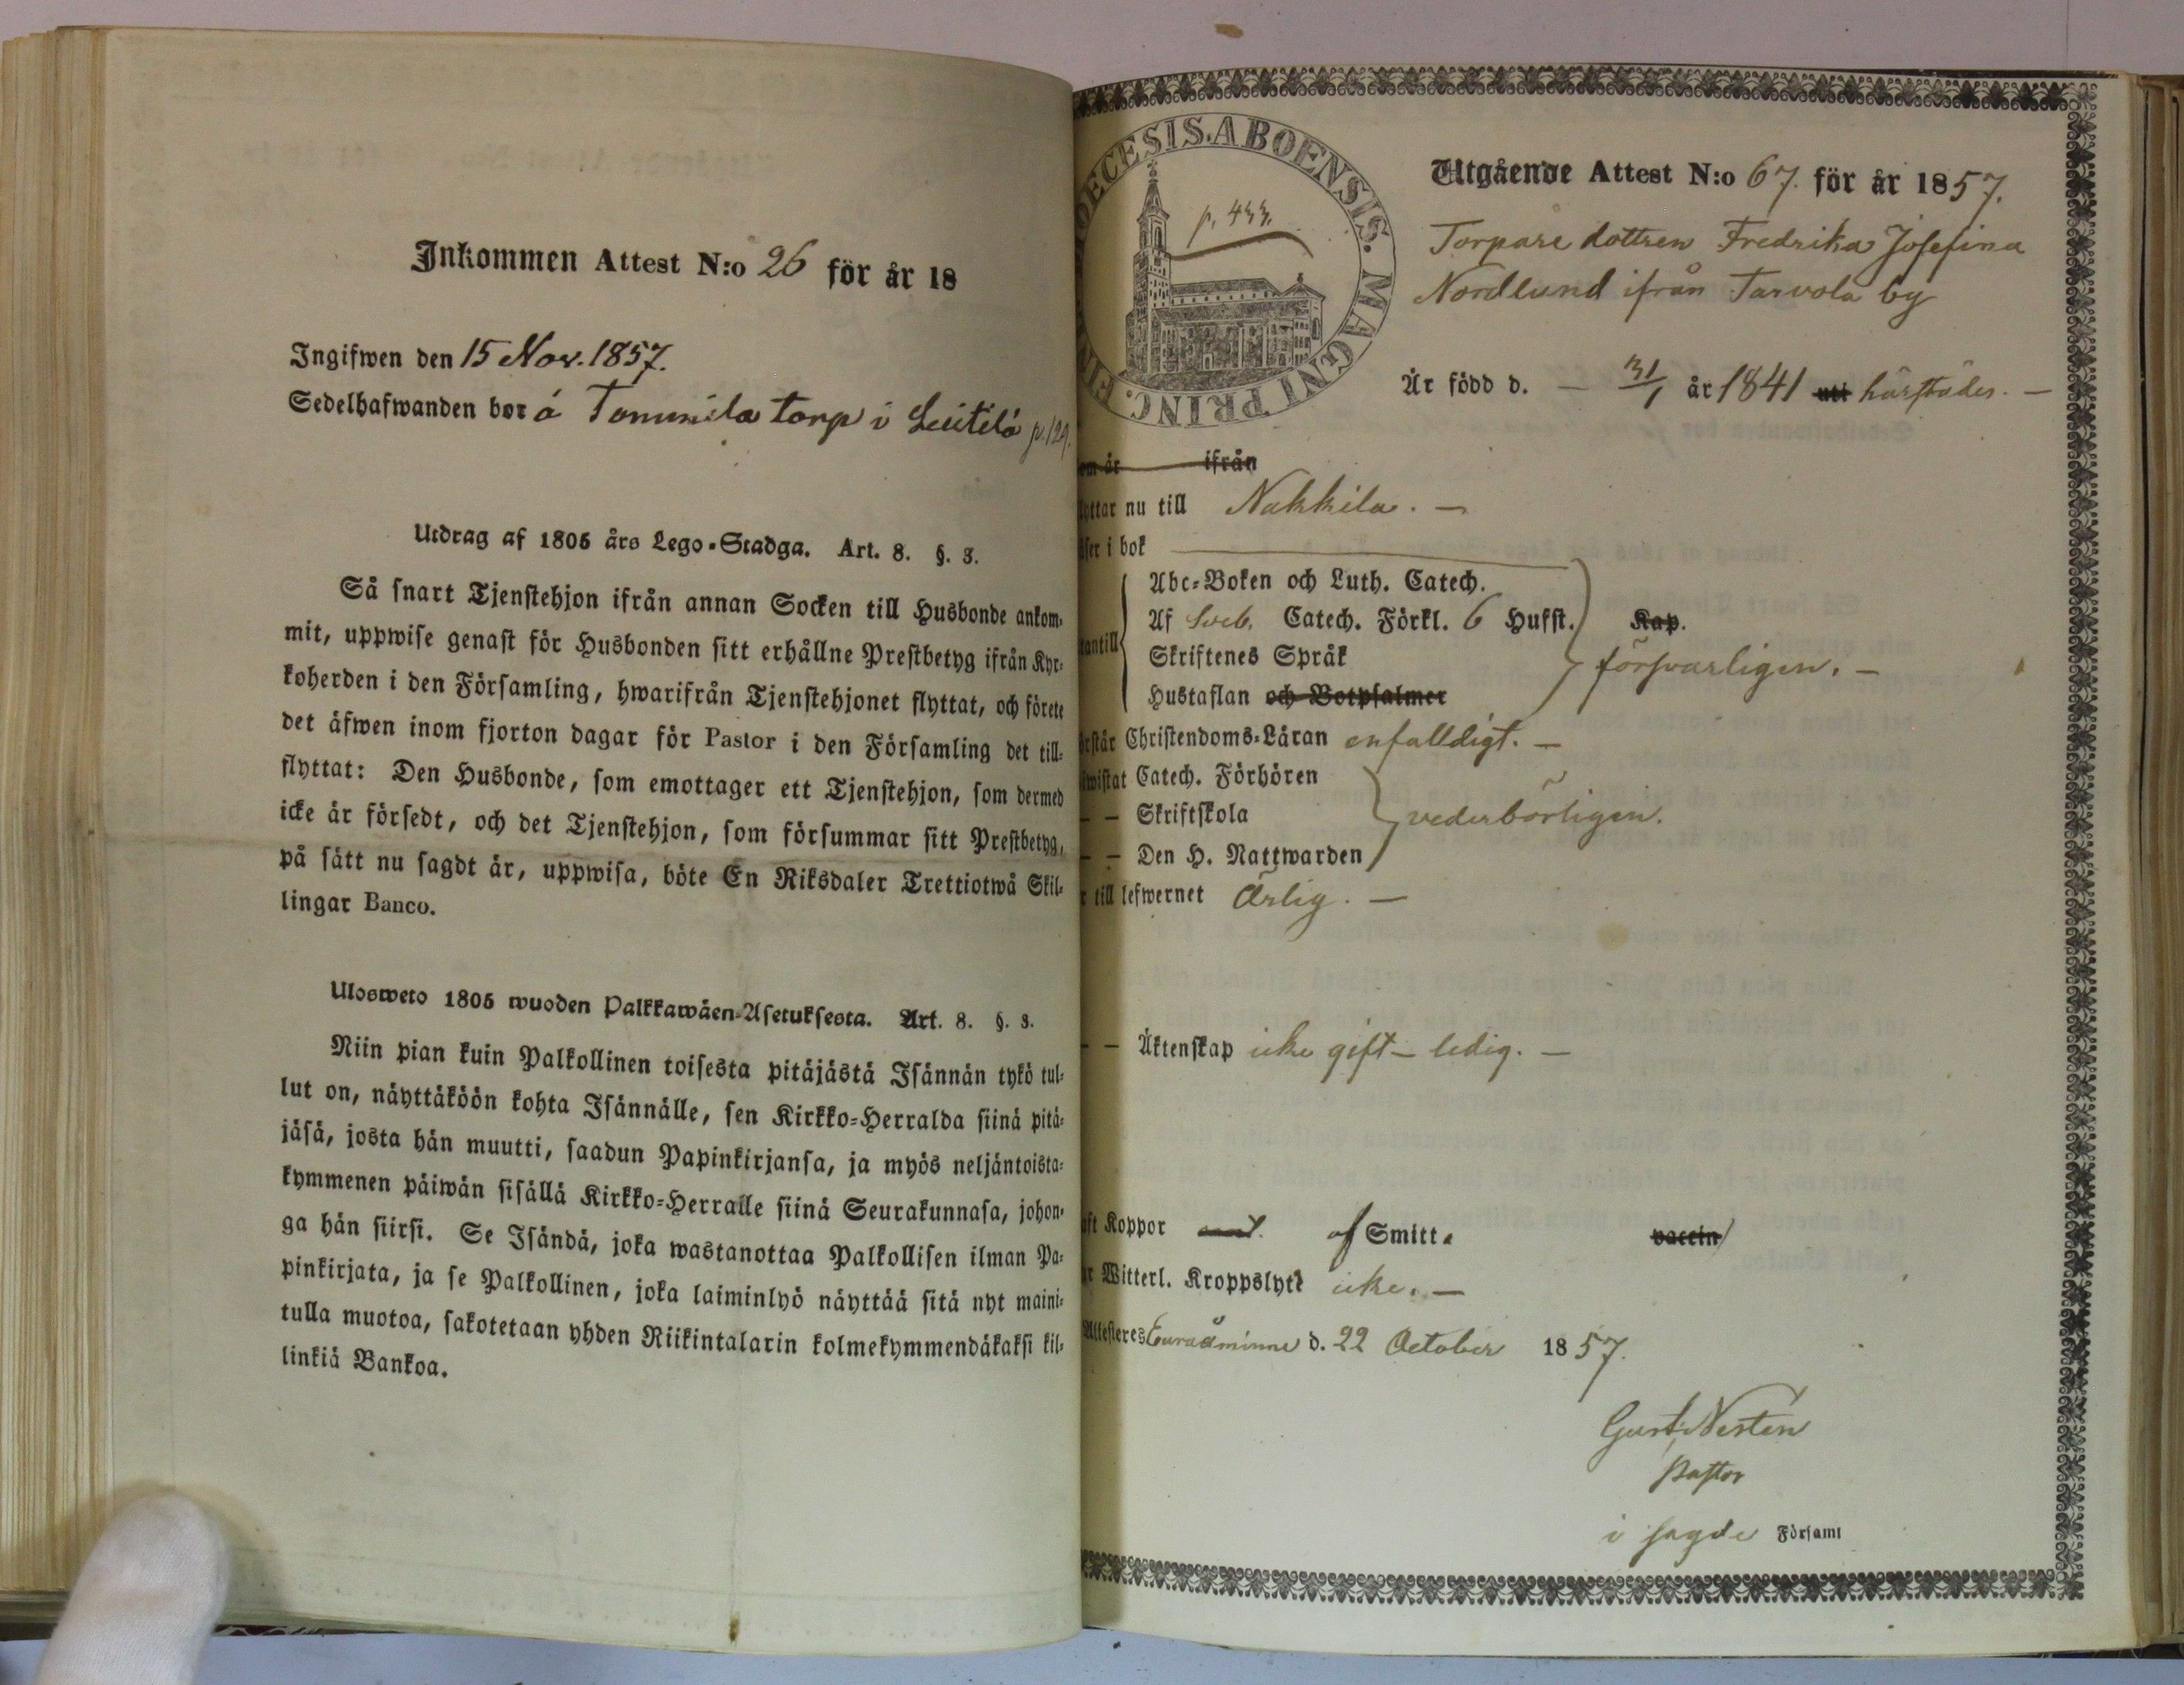 Inkommen Attest N:o 26 för år 18
Ingifwen den 15 Nov. 1857.
Sedelhafwanden bor á Tommila torp i Leitilä p. 129.
Utdrag af 1805 års Lego-Stadga. Art. 8. §. 3.
Så snart Tjenstehjon ifrån annan Socken till Husbonde ankom-
mit, uppwise genast för Husbonden sitt erhållne Prestbetyg ifrån Kyr-
koherden i den Församling, hwarifrån Tjenstehjonet flyttat, och förete
det äfwen inom fjorton dagar för Pastor i den Församling det till-
flyttat: Den Husbonde, som emottager ett Tjenstehjon, som dermed
icke är försedt, och det Tjenstehjon, som försummar sitt Prestbetyg,
på sätt nu sagdt är, uppwisa, böte En Riksdaler Trettiotwå Skil-
lingar Banco.
Ulosweto 1805 wuoden Palkkawäen-Asetuksesta. Art. 8. §. 3.
Niin pian kuin Palkollinen toisesta pitäjästä Isännän tykö tul-
lut on, näyttäköön kohta Isännälle, sen Kirkko-Herralda siinä pitä-
jäsä, josta hän muutti, saadun Papinkirjansa, ja myös neljäntoista-
kymmenen päiwän sisällä Kirkko-Herralle siinä Seurakunnasa, johon-
ga hän siirsi. Se Isändä, joka wastanottaa Palkollisen ilman Pa-
pinkirjata, ja se Palkollinen, joka laiminlyö näyttää sitä nyt maini-
tulla muotoa, sakotetaan yhden Riikintalarin kolmekymmendäkaksi kil-
linkiä Bankoa.
OECESIS.ABOENSIS. MAGNI PRINC. FIN
p. 433.
Utgående Attest N:o 67. för år 1857.
Torpare dottren Fredrika Josefina
Nordlund ifrån Tarvola by
Är född d. — 31/1 år 1841 uti härstädes. —
om är ifrån
lyttar nu till Nakkila. —
äser i bok
Abc-Boken och Luth. Catech.
Af Sveb. Catech. Förkl. 6 Hufst. Kap.
tantill
Skriftenes Språk
försvarligen. —
Hustaflan och Botpsalmer
rstår Christendoms-Läran enfalldigt. —
wistat Catech. Förhören
— — Skriftskola
vederbörligen.
— — Den H. Nattwarden
r till lefwernet Ärlig. —
— — Äktenskap icke gift — ledig. —
aft Koppor af Smitt. vaccin
r Witterl. Kroppslyte icke. —
Attesteres Euraåminne d. 22 October 1857.
Gust. Nestén
Pastor
i sagde Församl